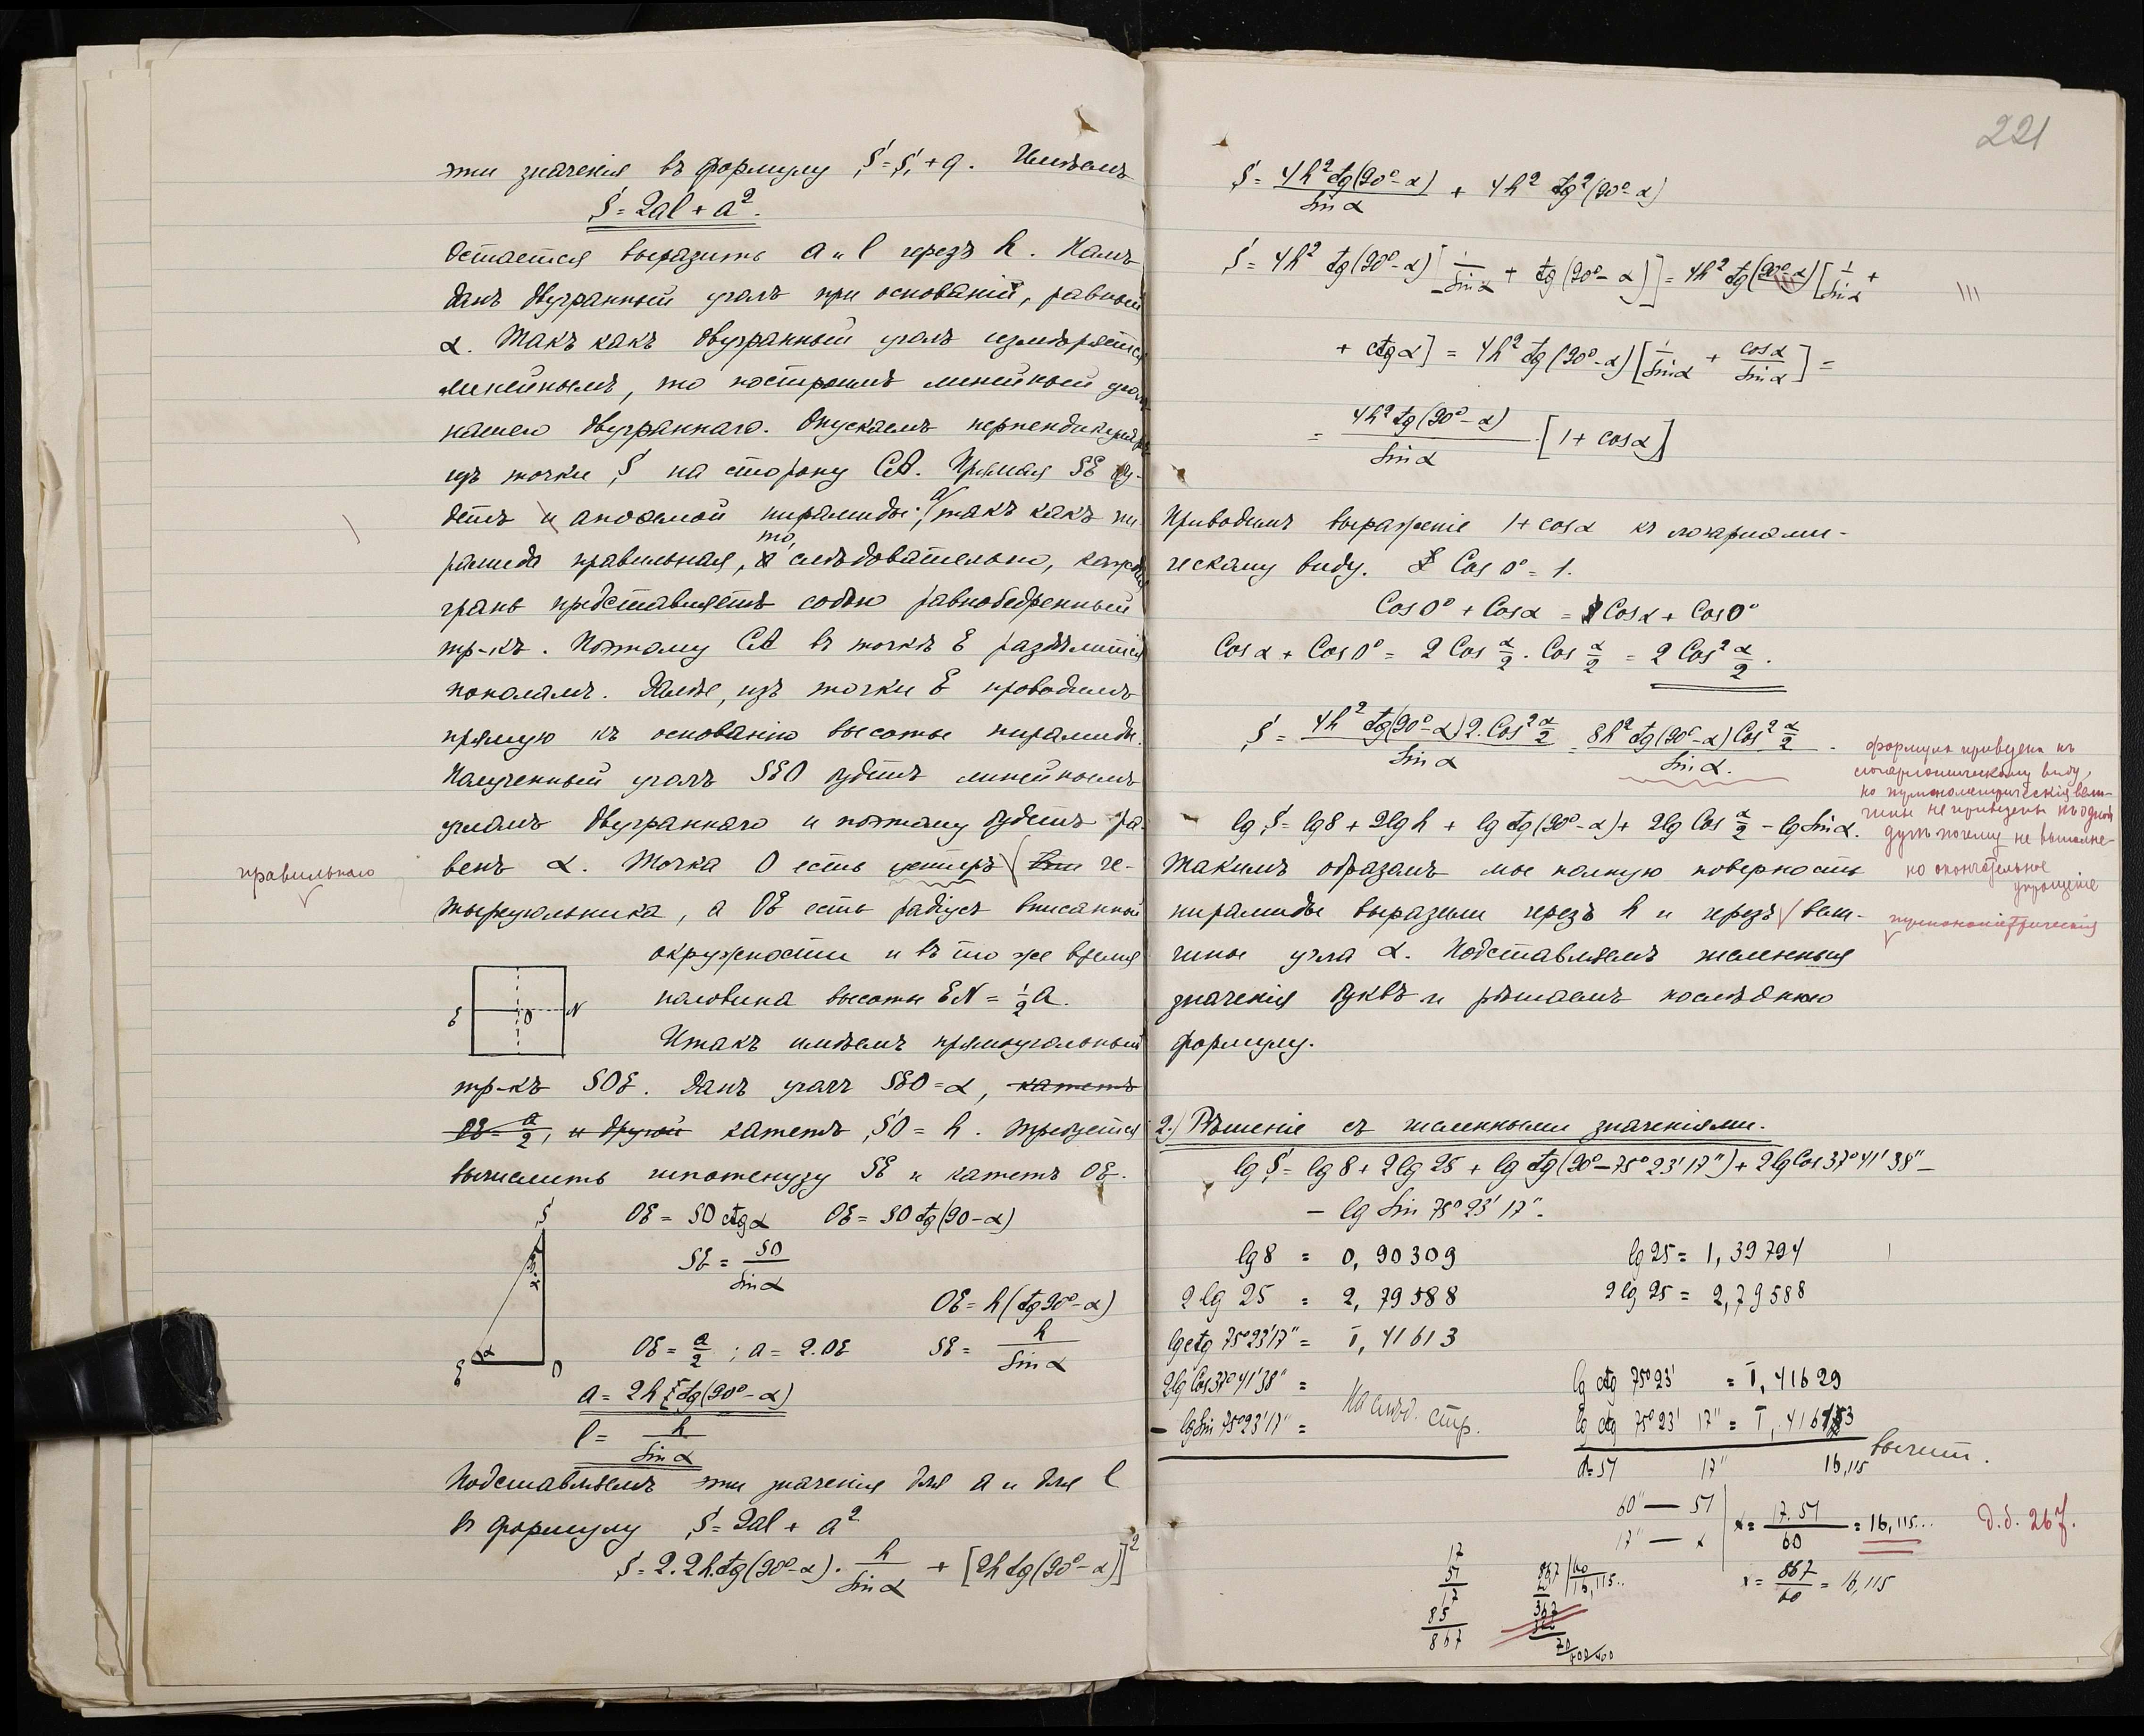 эти значенія въ формулу S=S₁+q. Имѣемъ
S=2al+a².
Остается выразить a и l черезъ h. Намъ
данъ двугранный уголъ при основаніи, равный
α. Такъ какъ двугранный уголъ измѣряется
линейнымъ, то построимъ линейный уголъ
нашего двуграннаго. Опускаемъ перпендикуляръ
изъ точки S на сторону CD. Прямая SE бу-
детъ и апоѳемой пирамиды; а такъ какъ пи-
то,
рамида правильная, и слѣдовательно, каждая
грань представляетъ собою равнобедренный
тр-къ. Поэтому CD въ точкѣ E раздѣлится
пополамъ. Далѣе, изъ точки E проводимъ
прямую къ основанію высоты пирамиды.
Полученный уголъ SEO будетъ линейнымъ
угломъ двуграннаго и поэтому будетъ ра-
правильнаго
венъ α. Точка O есть центръ че-
тыреугольника, а OE есть радіусъ вписанной
окружности и въ то же время
половина высоты EN = ½a.
E O N
Итакъ имѣемъ прямоугольный
тр-къ SOE. Данъ уголъ SEO=α, катетъ
OE=a/2, и другой катетъ SO = h. Требуется
вычислить гипотенузу SE и катетъ OE.
S
OE = SO ctgα OE = SO tg(90-α)
SE = SO/Sinα
OE = h(tg90°-α)
OE = a/2 ; a = 2.OE SE = h/Sinα
E α O
a = 2h tg(90°-α)
l = h/Sinα
Подставляемъ эти значенія для a и для l
въ формулу S=2al + a²
S=2.2h.tg(90°-α). h/Sinα + [2h tg(90°-α)]²
221
S = 4h² tg(90°-α)/Sinα + 4h² tg²(90°-α)
S = 4h² tg(90°-α)[1/Sinα + tg(90°-α)] = 4h² tg(90°-α)[1/Sinα +
+ ctgα] = 4h² tg(90°-α)[1/Sinα + cosα/Sinα] =
= 4h² tg(90°-α)/Sinα . [1+cosα]
Приводимъ выраженіе 1+cosα къ логариѳми-
ческому виду. Cos0°=1.
Cos0°+Cosα = Cosα+Cos0°
Cosα + Cos0° = 2Cos α/2 . Cos α/2 = 2Cos² α/2.
S = 4h² tg(90°-α)2.Cos² α/2 / Sinα = 8h² tg(90°-α)Cos² α/2 / Sinα.
формула приведена къ
логариѳмическому виду,
но тригонометрическія вели-
чины не приведены къ одной
дугѣ почему не выполне-
но окончательное
упрощеніе
lg S = lg8 + 2lgh + lg tg(90°-α) + 2lg Cos α/2 - lg Sinα.
Такимъ образомъ мы полную поверхность
пирамиды выразили черезъ h и черезъ вели-
тригонометрическія
чины угла α. Подставляемъ численныя
значенія буквъ и рѣшаемъ послѣднюю
формулу.
2.) Рѣшеніе съ численными значеніями.
lg S = lg8 + 2lg25 + lg tg(90°-75°23'17'') + 2lgCos37°41'38'' -
- lg Sin 75°23'17''.
lg8 = 0,90309 lg25 = 1,39794
2lg25 = 2,79588 2lg25 = 2,79588
lgctg 75°23'17'' = 1̄,41613
2lg Cos37°41'38'' = lg ctg 75°23' = 1̄,41629
На слѣд. стр.
- lgSin 75°23'17'' = lg ctg 75°23' 17'' = 1̄,41613
вычит.
d=51 17'' 16,115
60'' — 51
17'' — x
x = 17.51/60 = 16,115... д.д. 267.
x = 867/60 = 16,115
17
51
17
85
867
867 | 60
16,115..